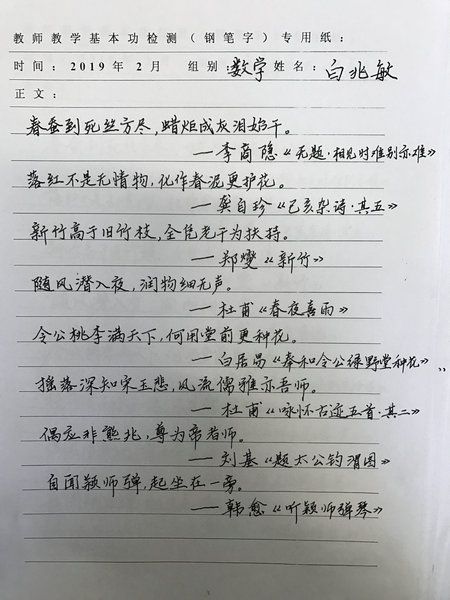 教师教学基本功检测（钢笔字）专用纸：
时间：2019年2月 组别：数学 姓名：白兆敏
正文：
春蚕到死丝方尽，蜡炬成灰泪始干。
—李商隐《无题·相见时难别亦难》
落红不是无情物，化作春泥更护花。
—龚自珍《己亥杂诗·其五》
新竹高于旧竹枝，全凭老干为扶持。
—郑燮《新竹》
随风潜入夜，润物细无声。
—杜甫《春夜喜雨》
令公桃李满天下，何用堂前更种花。
—白居易《奉和令公绿野堂种花》
摇落深知宋玉悲，风流儒雅亦吾师。
—杜甫《咏怀古迹五首·其二》
偶应非熊兆，尊为帝者师。
—刘基《题太公钓渭图》
自闻颖师弹，起坐在一旁。
—韩愈《听颖师弹琴》